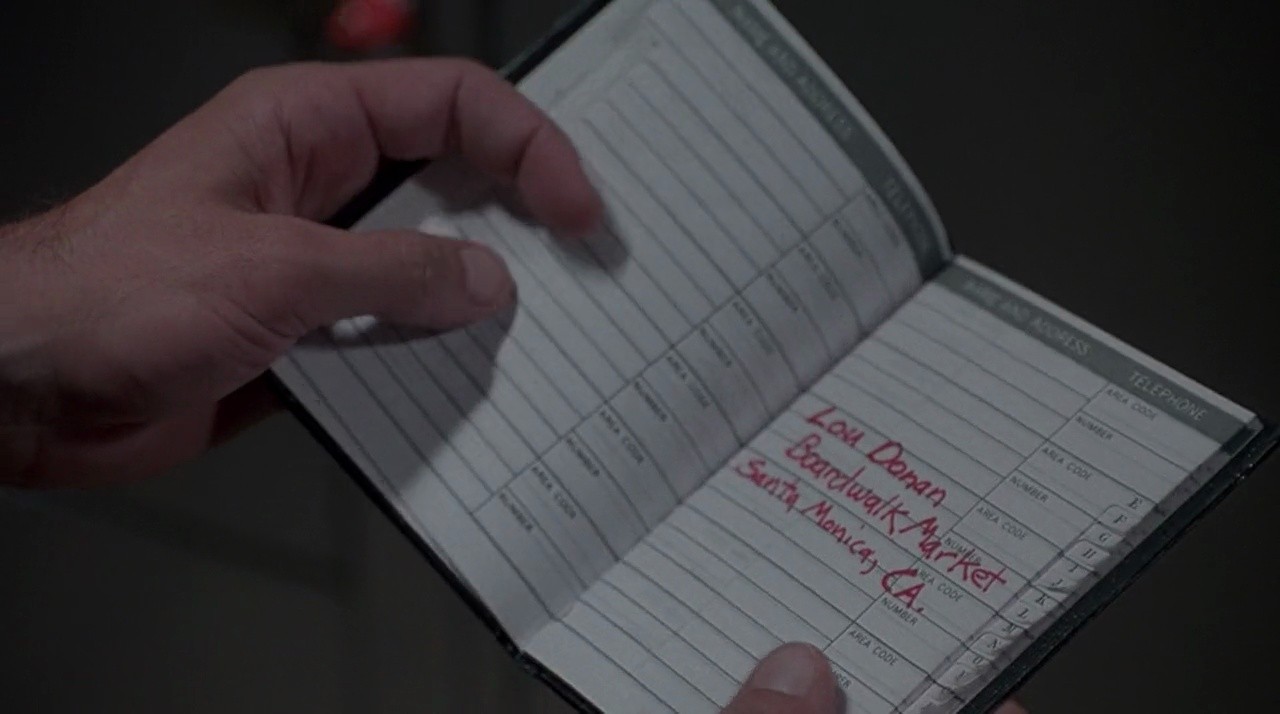 NAME AND ADDRESS TELEPHONE
AREA CODE
NUMBER
AREA CODE
NUMBER
AREA CODE
NUMBER
AREA CODE
NUMBER
AREA CODE
NUMBER
AREA CODE
NUMBER
NAME AND ADDRESS TELEPHONE
AREA CODE
NUMBER
AREA CODE
NUMBER
AREA CODE
NUMBER
AREA CODE
NUMBER
AREA CODE
Lou Donan
Boardwalk Market
Santa Monica, CA.
E
F
G
H
I
J
K
L
M
N
O